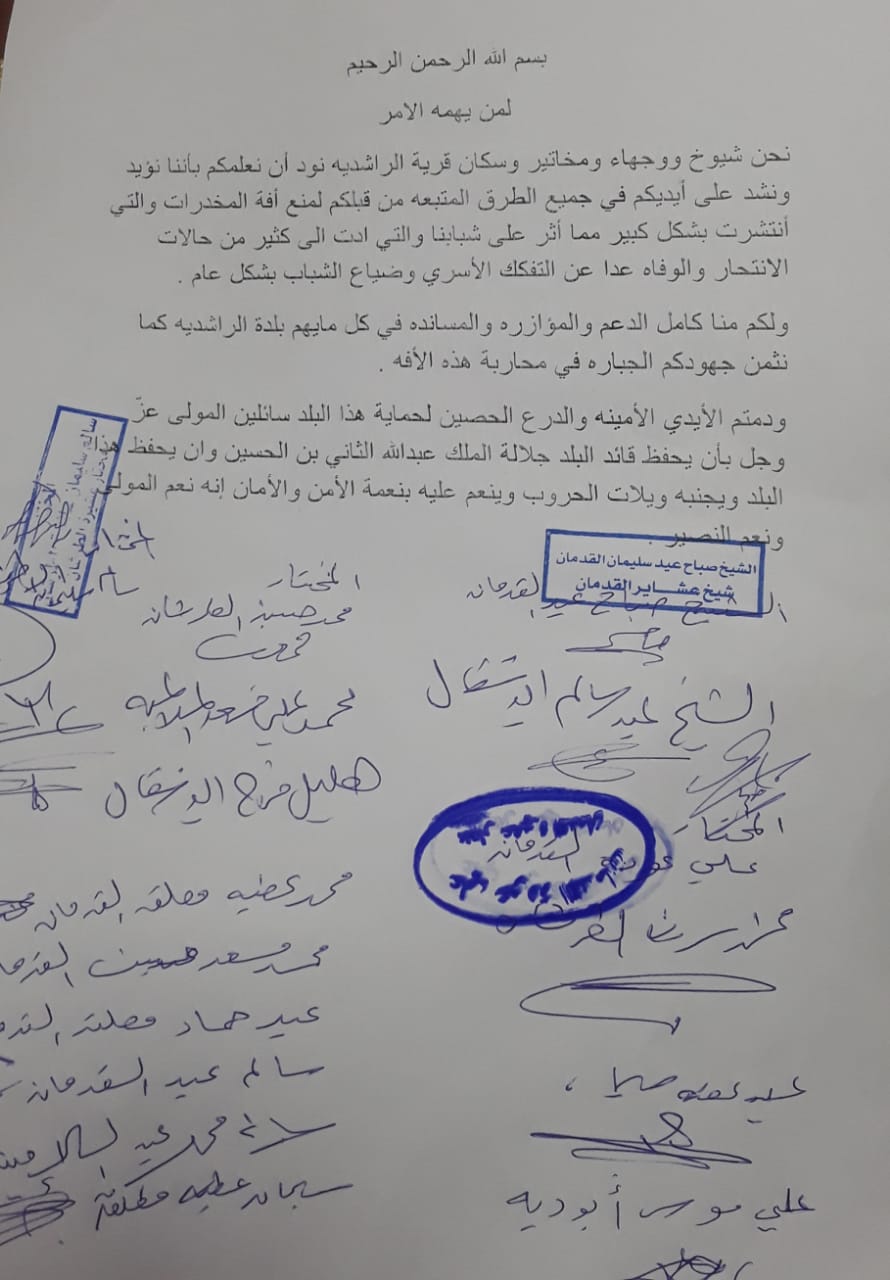 بسم الله الرحمن الرحيم
لمن يهمه الامر
نحن شيوخ ووجهاء ومخاتير وسكان قرية الراشديه نود أن نعلمكم بأننا نؤيد
ونشد على أيديكم في جميع الطرق المتبعه من قبلكم لمنع أفة المخدرات والتي
أنتشرت بشكل كبير مما أثر على شبابنا والتي ادت الى كثير من حالات
الانتحار والوفاه عدا عن التفكك الأسري وضياع الشباب بشكل عام .
ولكم منا كامل الدعم والمؤازره والمسانده في كل مايهم بلدة الراشديه كما
نثمن جهودكم الجباره في محاربة هذه الأفه .
ودمتم الأيدي الأمينه والدرع الحصين لحماية هذا البلد سائلين المولى عزّ
وجل بأن يحفظ قائد البلد جلالة الملك عبدالله الثاني بن الحسين وان يحفظ هذا
البلد ويجنبه ويلات الحروب وينعم عليه بنعمة الأمن والأمان إنه نعم المولى
ونعم النصير .
الشيخ صباح عيد سليمان القدمان
شيخ عشاير القدمان
الشيخ صباح عيد القدمان
المختار
محمد حسين الطرشان
المختار
سالم سليمان
الشيخ عيد سالم
محمد علي
هليل فرج
المختار
علي عودة
القدمان
محمد عطيه مطلق القدمان
محمد مسعد حسين
عيد حماد مطلق
سالم عيد القدمان
محمد عيد
عيد عطيه
سلمان عطيه مطلق
علي موسى أبوديه